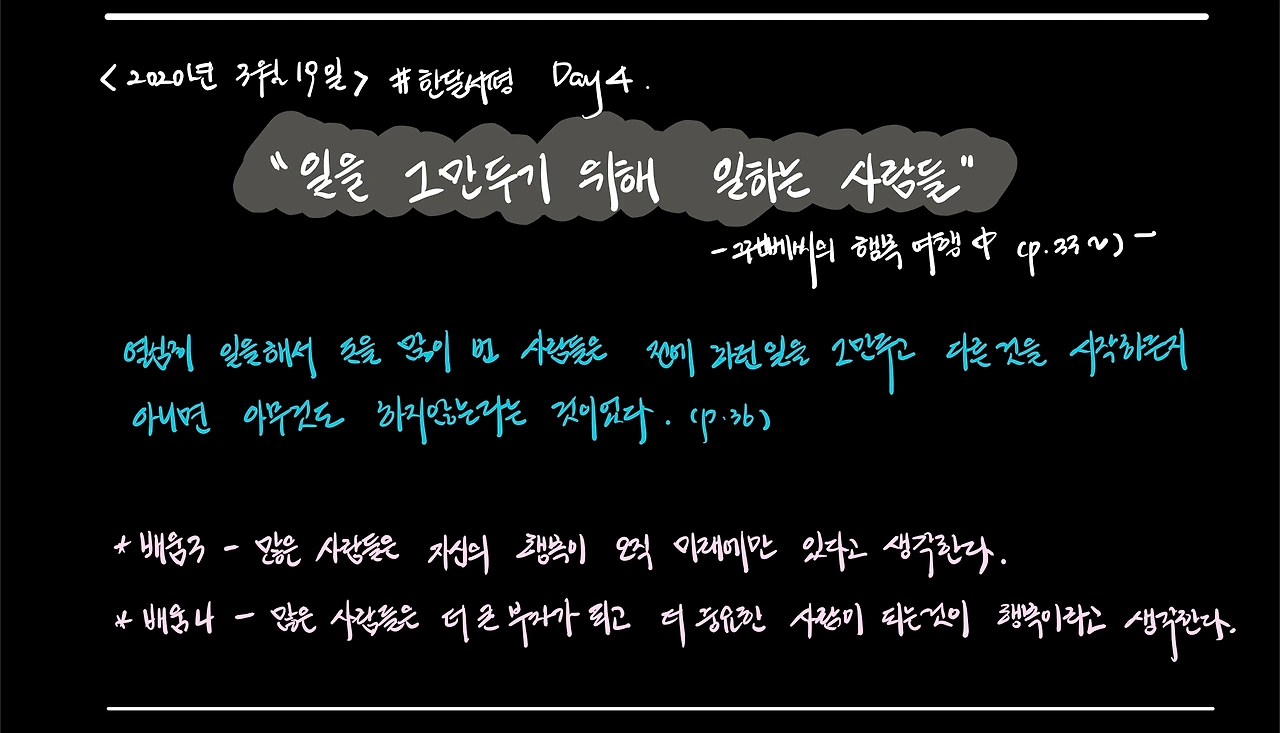 <2020년 3월 19일> #한달서평 Day 4.
"일을 그만두기 위해 일하는 사람들"
- 꾸뻬씨의 행복 여행 中 (p.33~) -
열심히 일을해서 돈을 많이 번 사람들은 전에 하던일을 그만두고 다른것을 시작하든지
아니면 아무것도 하지않는다는 것이었다. (p.36)
* 배움3 - 많은 사람들은 자신의 행복이 오직 미래에만 있다고 생각한다.
* 배움4 - 많은 사람들은 더 큰 부자가 되고 더 중요한 사람이 되는것이 행복이라고 생각한다.